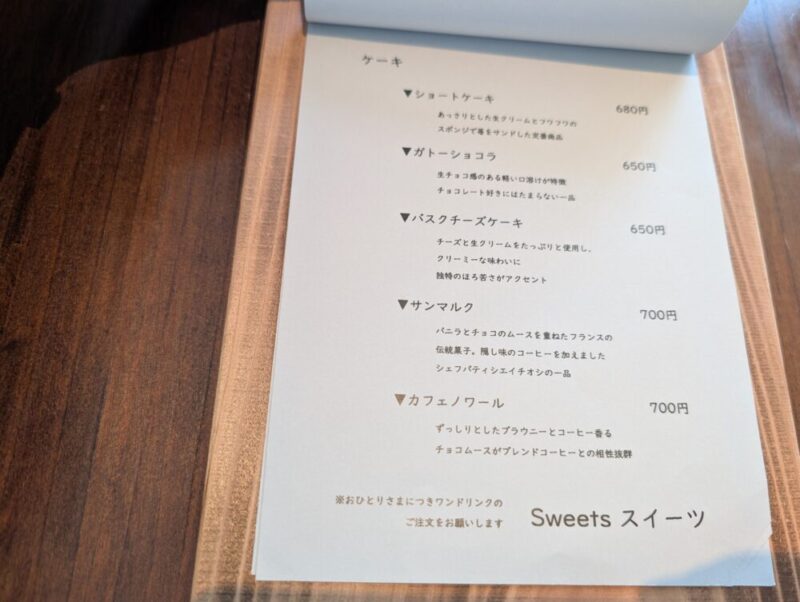 ケーキ
▼ショートケーキ 680円
あっさりとした生クリームとフワフワの
スポンジで苺をサンドした定番商品
▼ガトーショコラ 650円
生チョコ感のある軽い口溶けが特徴
チョコレート好きにはたまらない一品
▼バスクチーズケーキ 650円
チーズと生クリームをたっぷりと使用し、
クリーミーな味わいに
独特のほろ苦さがアクセント
▼サンマルク 700円
バニラとチョコのムースを重ねたフランスの
伝統菓子。隠し味のコーヒーを加えました
シェフパティシエイチオシの一品
▼カフェノワール 700円
ずっしりとしたブラウニーとコーヒー香る
チョコムースがブレンドコーヒーとの相性抜群
※おひとりさまにつきワンドリンクの
ご注文をお願いします
Sweets スイーツ